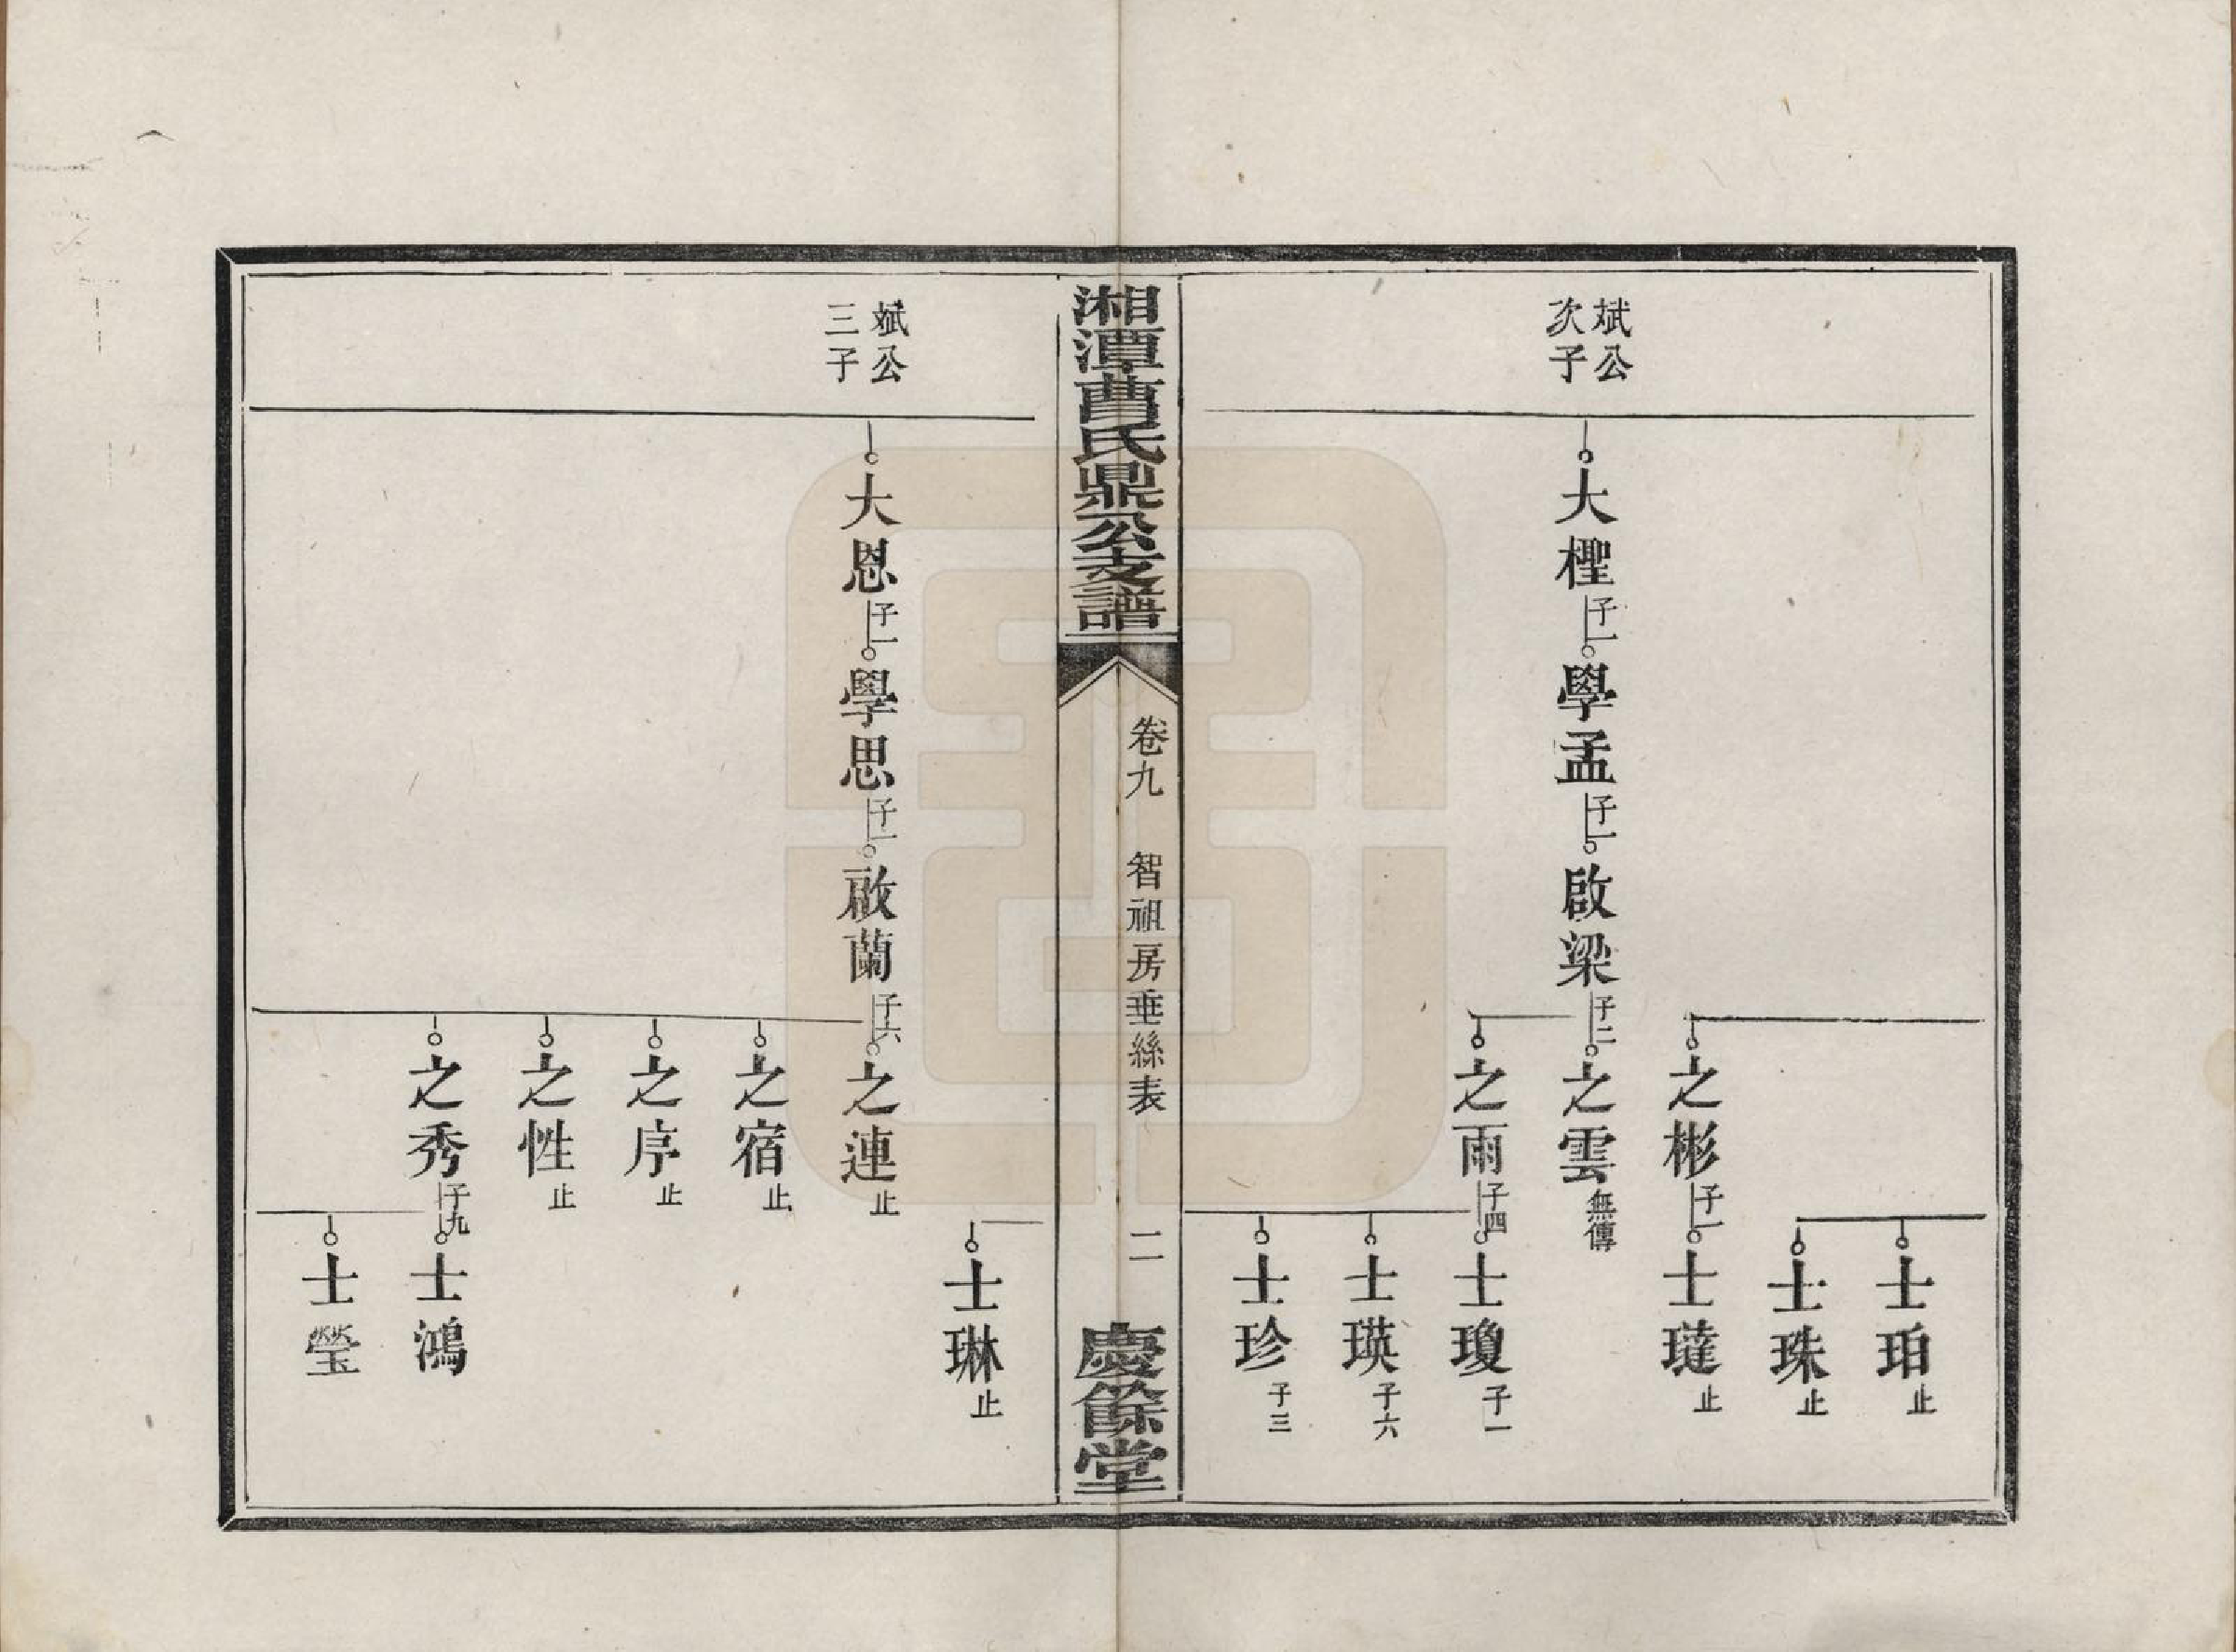 士珀止
士珠止
之彬子一士㺚止
斌公
次子
大檉子一學孟子一啟梁子二之雲無傳
之雨子四士瓊子一
士瑛子六
士珍子三
湘潭曹氏鼎公支譜
卷九 智祖房垂絲表 二
慶餘堂
士琳止
斌公
三子
大恩子一學思子一啟蘭子六之連止
之宿止
之序止
之性止
之秀子九士鴻
士瑩